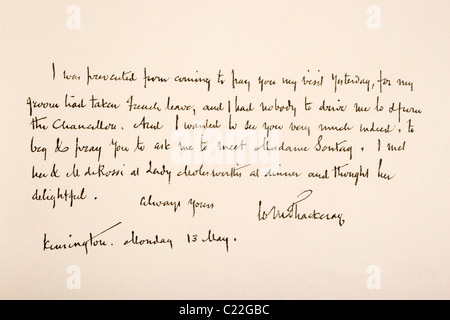 I was prevented from coming to pay you my visit Yesterday, for my
groom had taken French leave, and I had nobody to drive me to & from
the Chancellor. And I wanted to see you very much indeed. to
beg & pray you to ask me to meet Madame Sontag. I met
her & M de Rossi at Lady Molesworths at dinner and thought her
delightful.
Always Yours
W M Thackeray
Kensington. Monday 13 May.
alamy
alamy
Image ID: C22GBC
www.alamy.com